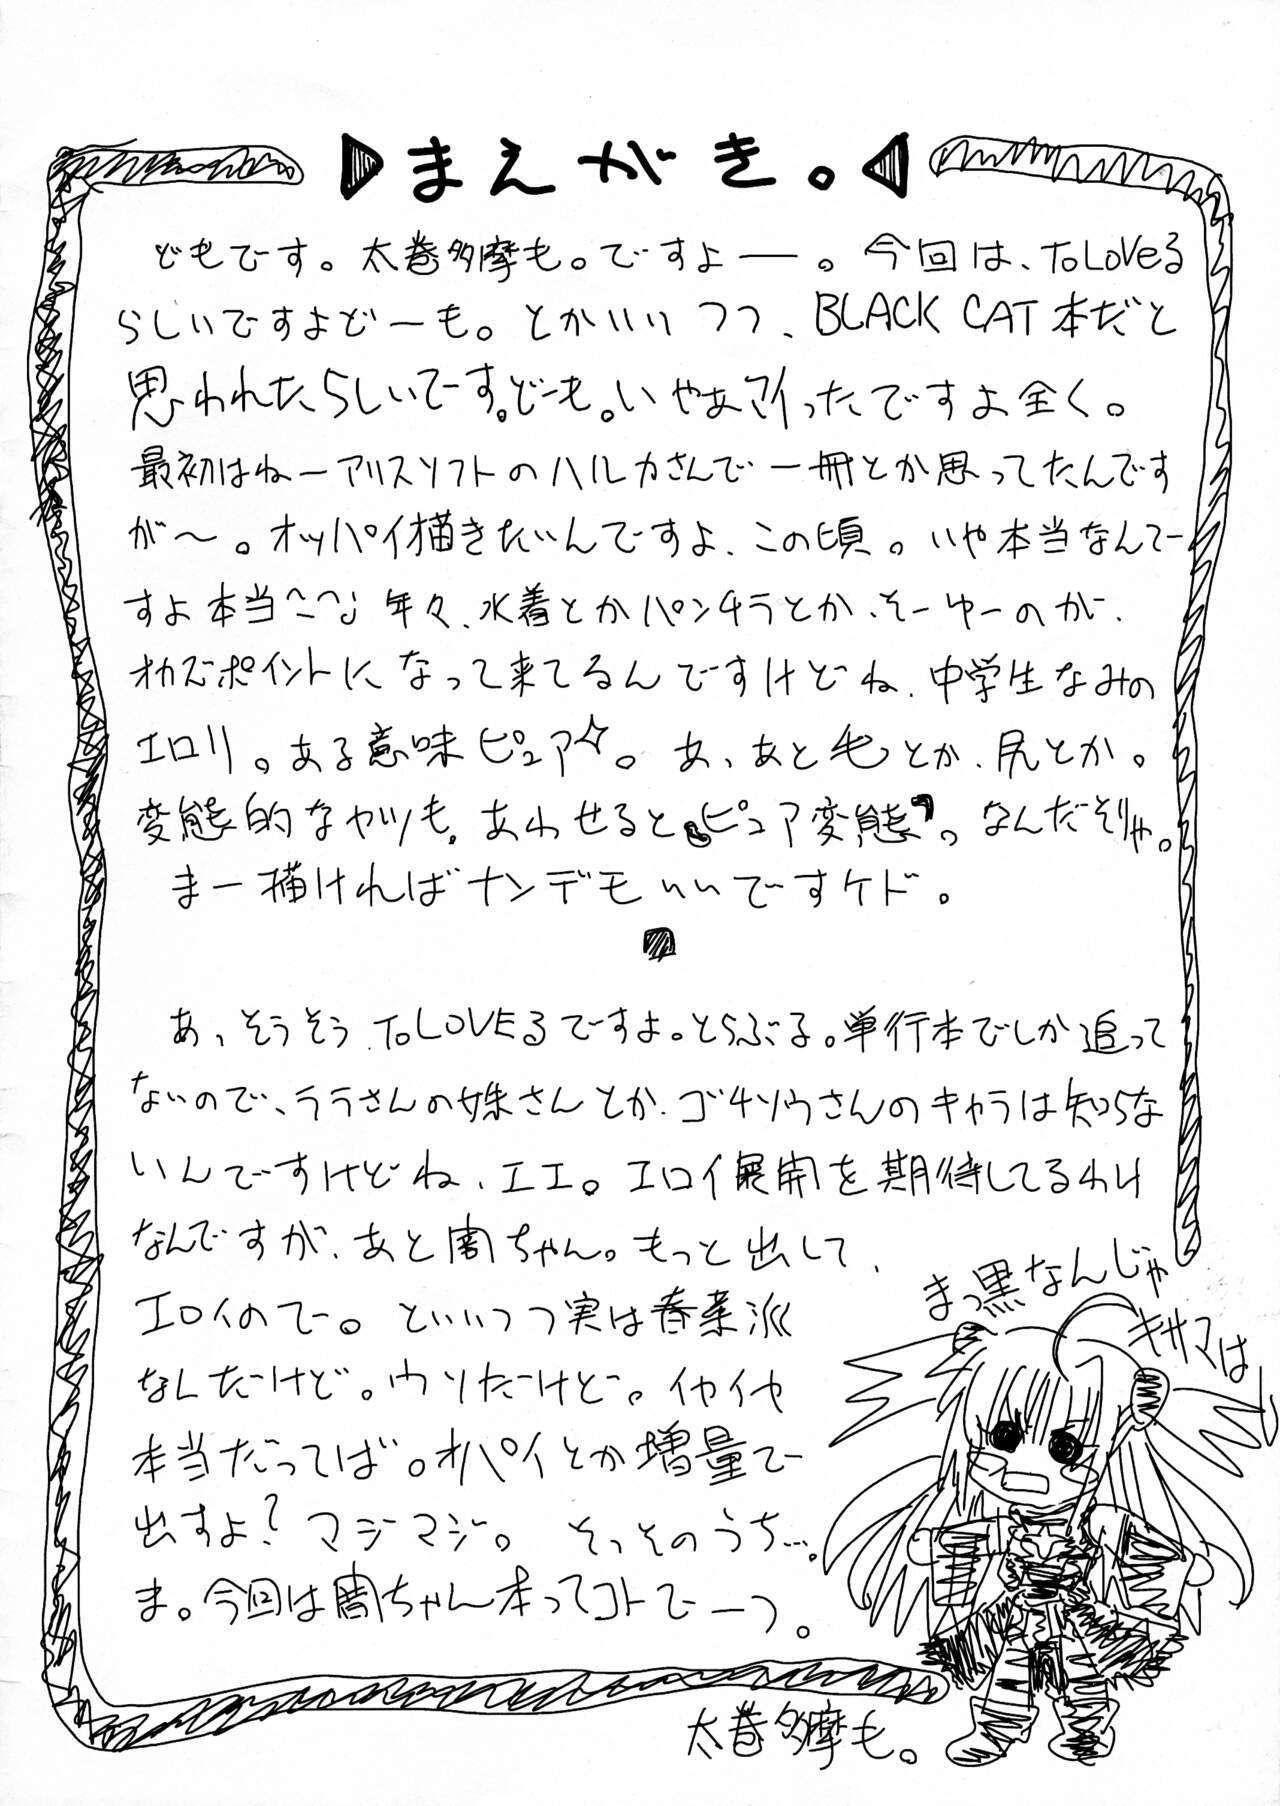 まえがき。
どもです。太巻多摩も。ですよー。今回は、ToLoveる
らしいですよどーも。とかいいつつ、BLACK CAT本だと
思われたらしいでーす。どーも。いやぁマイったですよ全く。
最初はねーアリスソフトのハルカさんで一冊とか思ってたんです
が〜。オッパイ描きたいんですよ、この頃。いや本当なんでー
すよ本当^~^; 年々、水着とかパンチラとか、そーゆーのが、
オカズポイントになって来てるんですけどね、中学生なみの
エロリ。ある意味ピュア☆。あ、あと毛とか、尻とか。
変態的なヤツも。あわせると「ピュア変態」。なんだそりゃ。
まー描ければナンデモいいですケド。
あ、そうそう、ToLOVEるですよ。とらぶる。単行本でしか追って
ないので、ララさんの妹さんとか、ゴチソウさんのキャラは知らな
いんですけどね、エエ。エロイ展開を期待してるわけ
なんですが、あと闇ちゃん。もっと出して、
エロイのでー。といいつつ実は春菜派
なんだけど。ウソだけど。イヤイヤ
本当だってば。オパイとか増量で
出すよ？マジマジ。そっそのうち…。
ま。今回は闇ちゃん本ってコトでーつ。
まっ黒なんじゃ
キサマは
太巻多摩も。